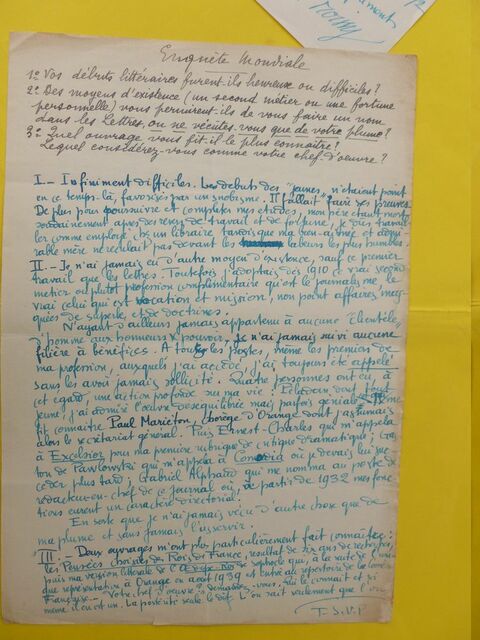 Enquête Mondiale
1° Vos débuts littéraires furent-ils heureux ou difficiles?
2° Des moyens d'existence (un second métier ou une fortune
personnelle) vous permirent-ils de vous faire un nom
dans les Lettres, ou ne vécûtes-vous que de votre plume?
3° Quel ouvrage vous fit-il le plus connaître?
Lequel considérez-vous comme votre chef d'oeuvre?
I.- Infiniment difficiles. Les débuts des "jeunes" n'étaient point
en ce temps-là, favorisés par un snobisme. Il fallait "faire ses preuves.
De plus pour poursuivre et compléter mes études, mon père étant mort
soudainement après des revers de travail et de fortune, je dus travail-
ler comme employé chez un libraire tandis que ma bien-aimée et admi-
rable mère ne reculait pas devant les labeurs les plus humbles.
II.- Je n'ai jamais eu d'autre moyen d'existence, sauf ce premier
travail que les lettres. Toutefois j'adoptai dès 1910 ce vrai second
métier ou plutôt profession complémentaire qu'est le journalisme, le
vrai celui qui est vocation et mission, non point affaires
de superbe et de doctrines.
N'ayant d'ailleurs jamais appartenu à aucune "clientèle"
d'homme aux honneurs et pouvoir, je n'ai jamais suivi aucune
filière à bénéfices. A tous les postes, même les premiers de
ma profession, auxquels j'ai accédé, j'ai toujours été appelé
sans les avoir jamais sollicité. Quatre personnes ont eu à
cet égard, une action profonde sur ma vie: Péladan dont tout
jeune j'ai admiré l'oeuvre déséquilibrée mais parfois géniale
fit connaître Paul Mariéton, chorège d'Orange dont j'assumais
alors le secrétariat général. Puis Ernest-Charles qui m'appela
à Excelsior pour ma première rubrique de critique dramatique; Gas-
ton de Pawlowski qui m'appela à Comoedia où je devais lui suc-
céder plus tard; Gabriel Alphaud qui me nomma au poste de
rédacteur-en-chef de ce journal où, à partir de 1932 mes fonc-
tions eurent un caractère directorial.
En sorte que je n'ai jamais vécu d'autre chose que de
ma plume et sans jamais l'asservir.
III.- Deux ouvrages m'ont plus particulièrement fait connaître:
les Pensées choisies des Rois de France, résultat de six ans de recherches,
puis ma version littérale de l'Oedipe-Roi de Sophocle qui, à la suite de l'uni-
que représentation à Orange en août 1939 est entré au répertoire de la Comédie
Française.- Votre chef d'oeuvre? demandez-vous. Sait-on et si
même il en est un. La postérité seule le dit. L'on sait seulement que l'on
T.S.V.P.